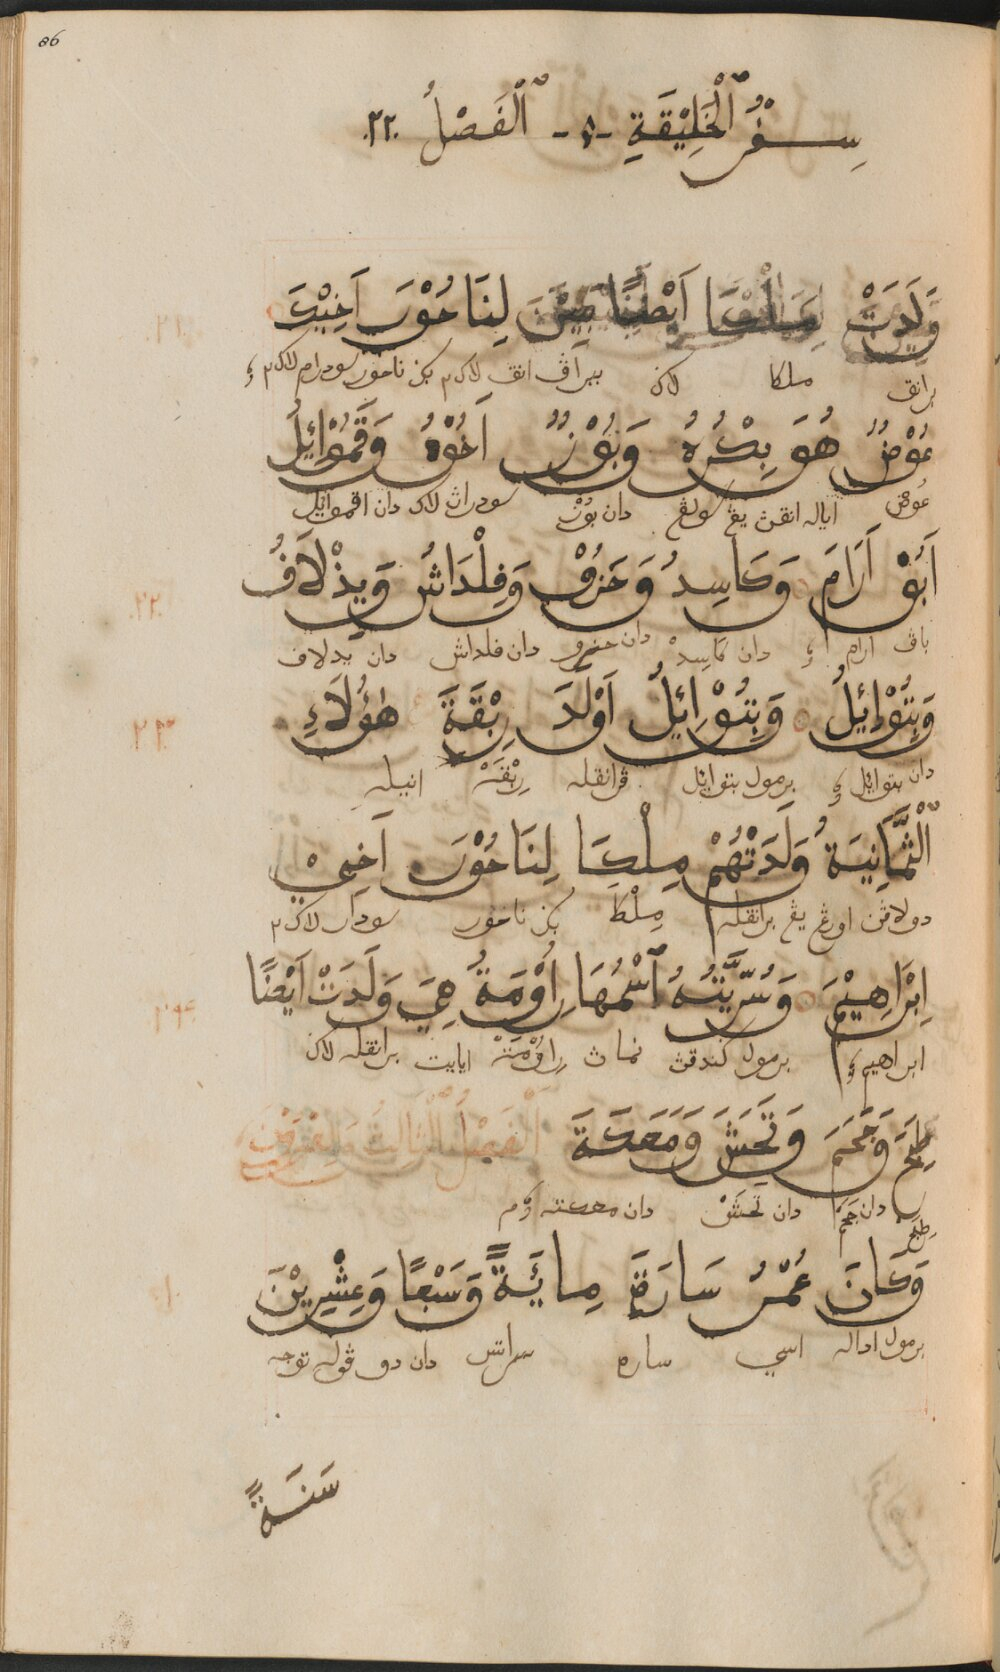 86
سِفْرُ ٱلْخَلِيْقَةِ - ٥ - ٱلْفَصْلُ ٢٢.
وَلَدَتْ مِلْكَا اَيْضًا بَنِيْنَ لِنَاحُوْرَ اَخِيْكَ
برانق ملكا لاكن ببراڤ انق لاكي٢ بكن ناحور سودرام لاكي٢
.٢١.
عُوْصُ هُوَ بِكْرُهُ وَبُوْزُ اَخُوْهُ وَقَمُوْائِيلُ
عُوص ايايله انقڽ يڠ سولڠ دان بُوْز سودراڽ لاكي دان اقموائيل
اَبُوْ اَرَامَ وَكَاسِدُ وَحَزُوْ وَفِلْدَاشُ وَيِدْلَافُ
باڤ ارام دان كاسد دان حزو دان فلداش دان يدلاف
.٢٢.
وَبِتُوْائِيلُ وَبِتُوْائِيلُ اَوْلَدَ رِبْقَةَ هٰؤُلَاءِ
دان بتوائيل برمول بتوائيل ڤرانقله رِبْقَهْ انيله
٢٣
ٱلثَّمَانِيَةُ وَلَدَتْهُمْ مِلْكَا لِنَاحُوْرَ اَخِيْ
دولاڤن اورڠ يڠ برانقله مِلْكَا بكن ناحور سودار لاكي٢
اِبْرَاهِيْمَ وَسُرِّيَّتُهُ ٱسْمُهَا رِاُوْمَةُ هِيَ وَلَدَتْ اَيْضًا
ابراهيم برمول كندقڽ نماڽ رِاُوْمَهْ اياايت برانقله لاكن
٢٤
طِبَحَ وَجَحَمَ وَتَحَشَ وَمَعَكَةَ اَلْفَصْلُ ٱلثَّالِثُ وَٱلْعِشْرُوْنَ
طِبَح دان جَحَم دان تَحَشْ دان معكته
وَكَانَ عُمْرُ سَارَةَ مِايَةً وَسَبْعًا وَعِشْرِيْنَ
برمول اداله اسي ساره سراتس دان دو ڤوله توجه
.١.
سَنَةً